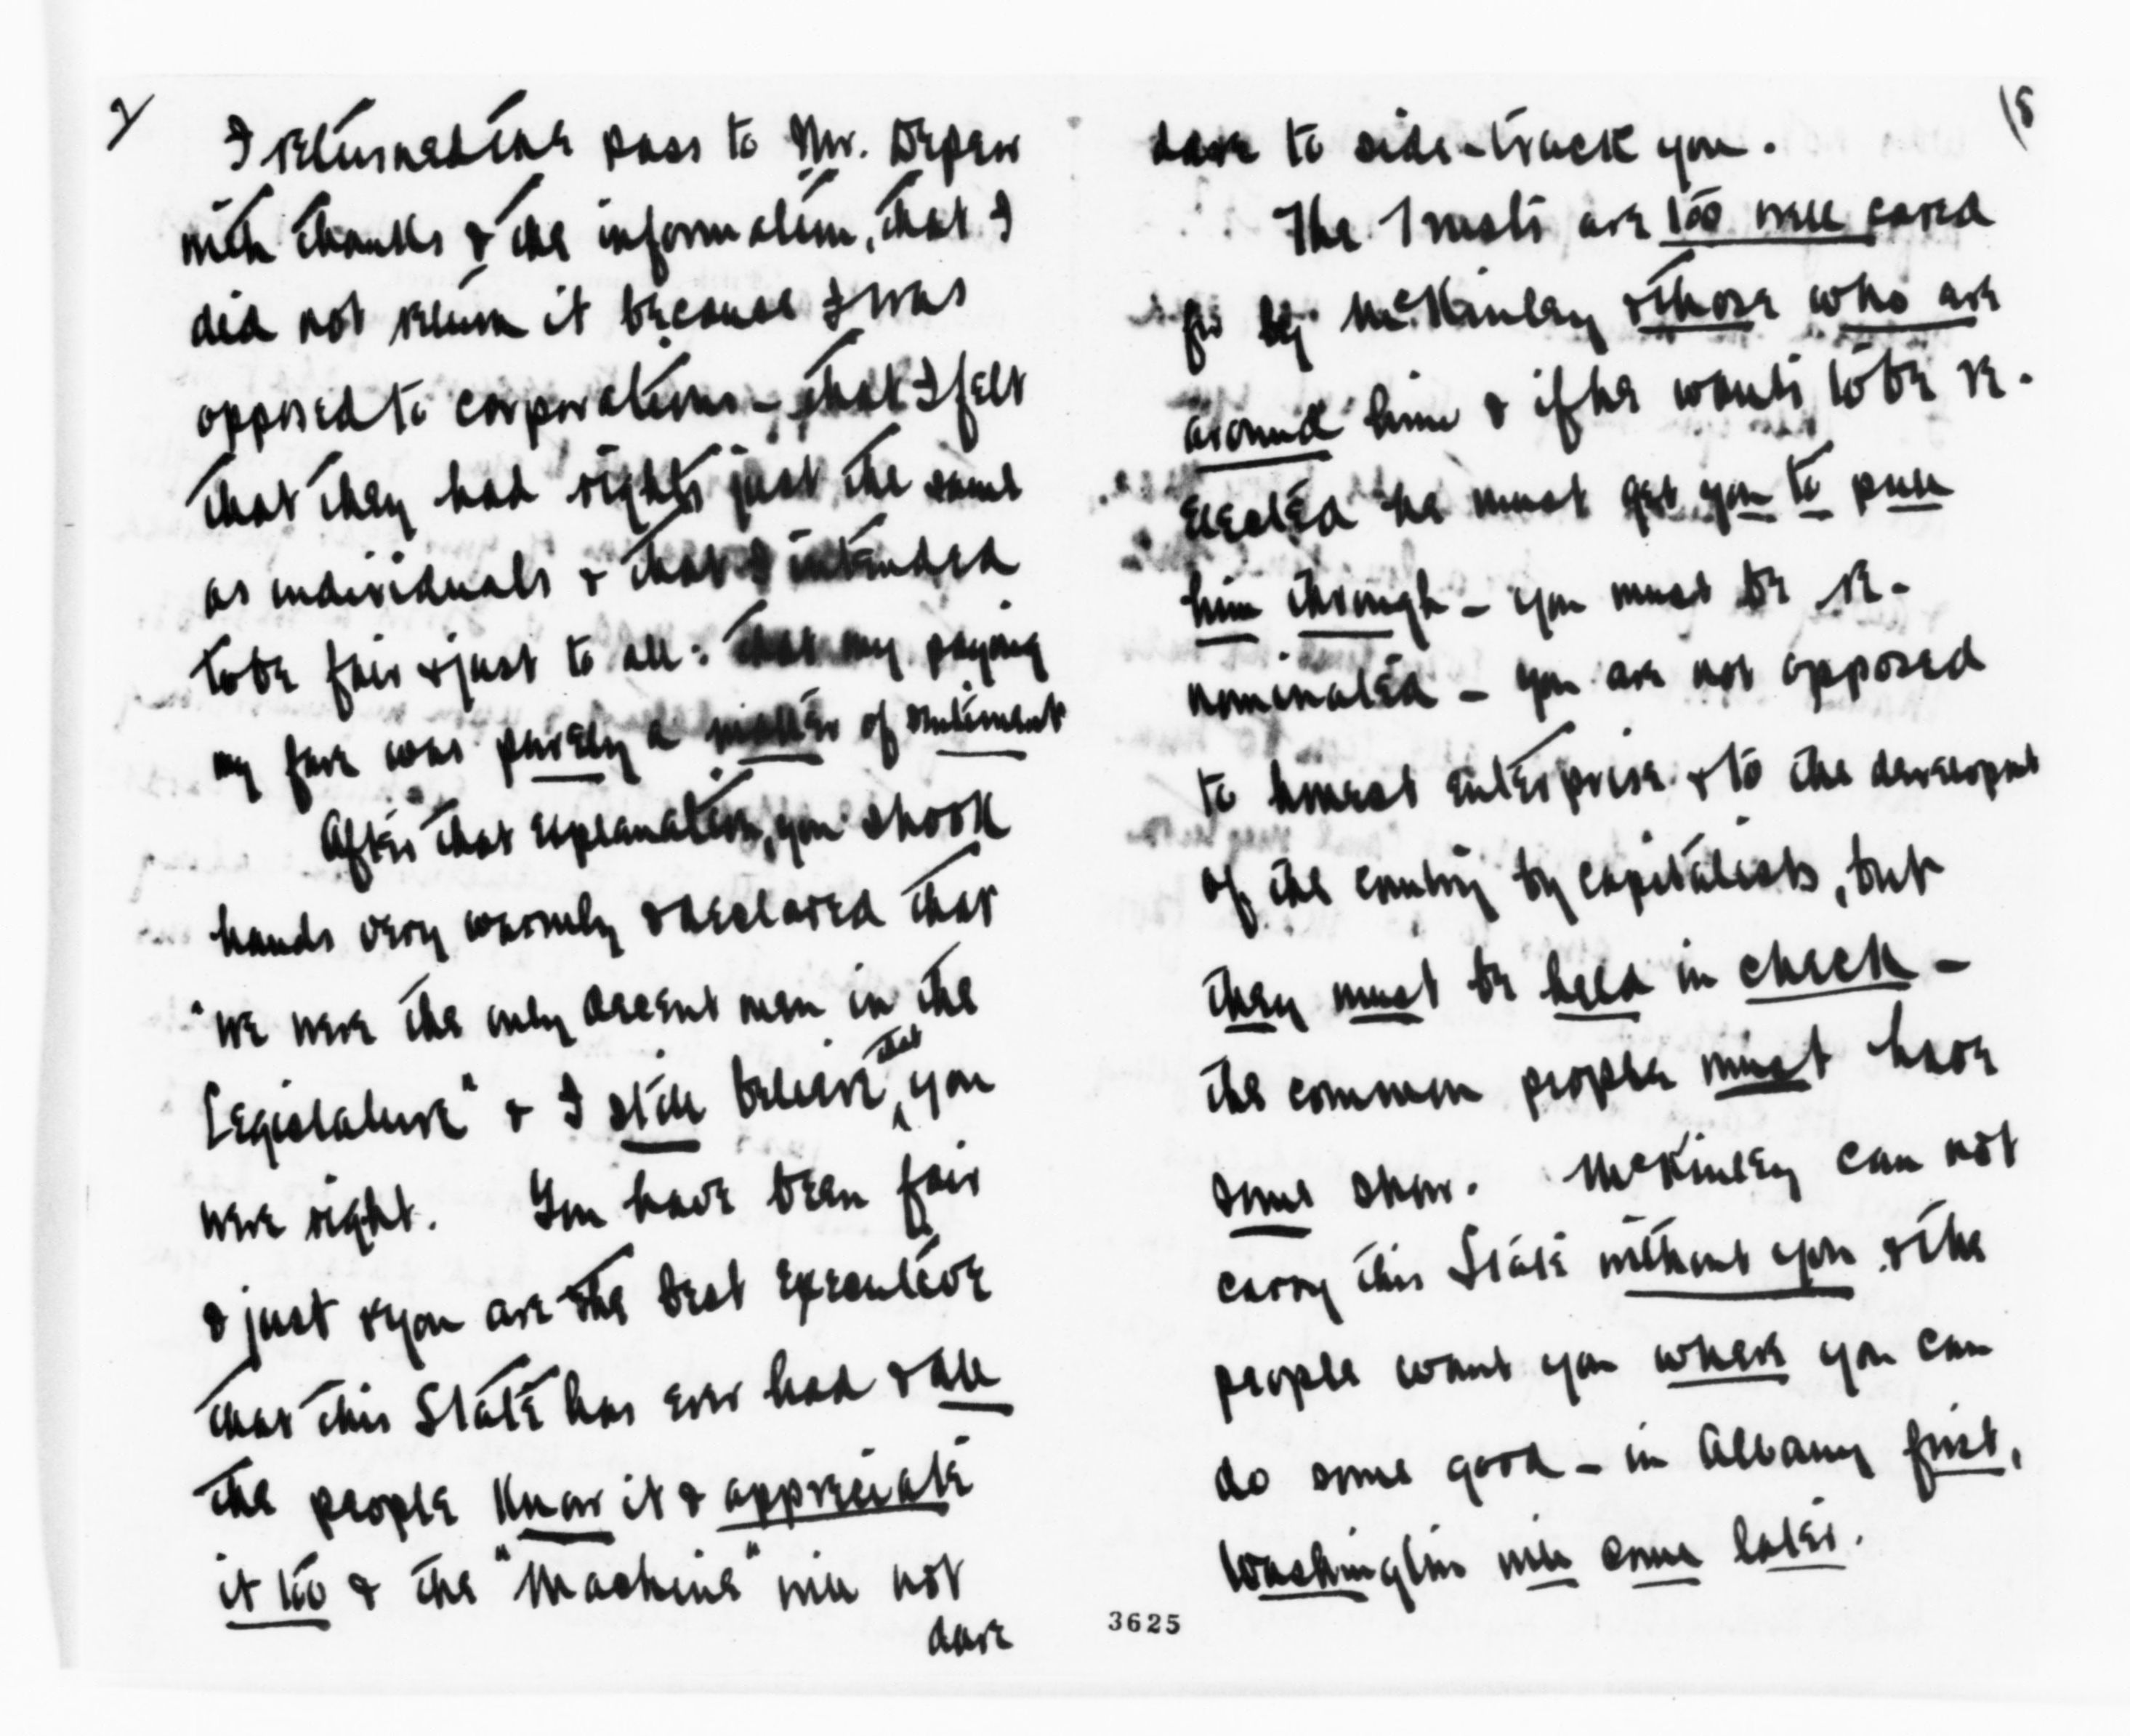 2
I returned the pass to Mr. Depew
with thanks & the information, that I
did not return it because I was
opposed to corporations - that I felt
that they had rights just the same
as individuals & that I intended
to be fair & just to all: that my paying
my fare was purely a matter of sentiment
After that explanation, you shook
hands very warmly & declared that
"we were the only decent men in the
Legislature" & I still believe that you
were right. You have been fair
& just & you are the best executive
that this State has ever had & all
the people know it & appreciate
it too & the "Machine" will not
dare
dare to side-track you.
The Trusts are too well cared
for by McKinley & those who are
around him & if he wants to be re-
elected he must get you to pull
him through - you must be re-
nominated - you are not opposed
to honest enterprise & to the developmt
of the country by capitalists, but
they must be held in check -
the common people must have
some show. McKinley can not
carry this State without you & the
people want you where you can
do some good - in Albany first,
Washington will come later.
3625